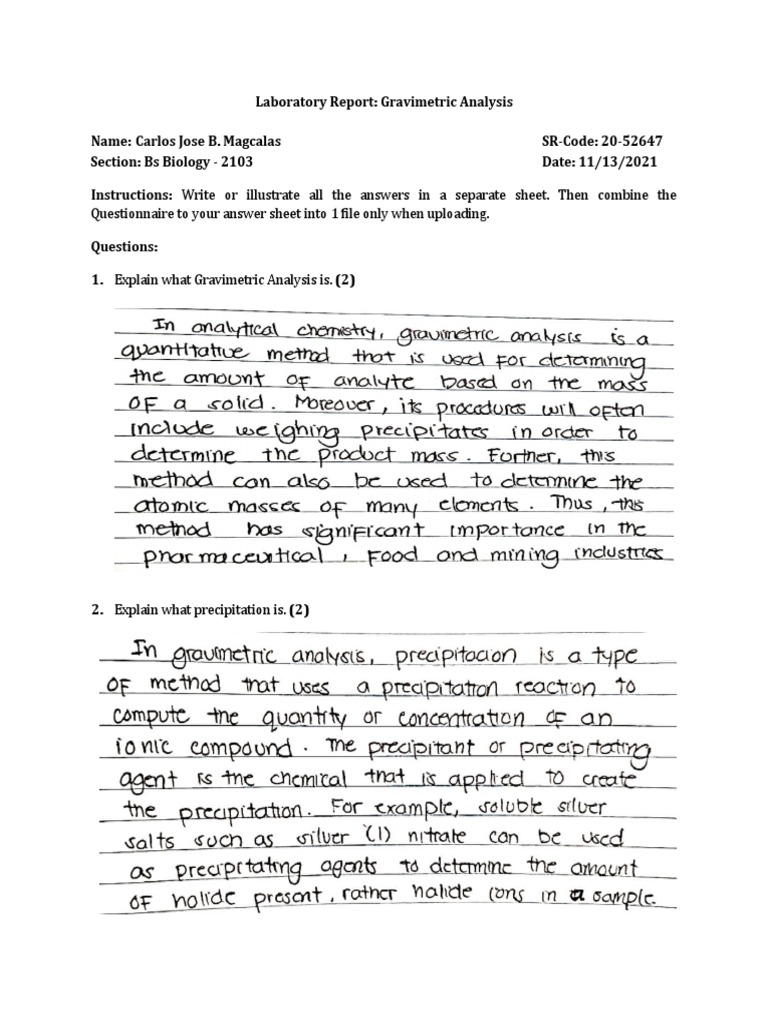 Laboratory Report: Gravimetric Analysis
Name: Carlos Jose B. Magcalas SR-Code: 20-52647
Section: Bs Biology - 2103 Date: 11/13/2021
Instructions: Write or illustrate all the answers in a separate sheet. Then combine the
Questionnaire to your answer sheet into 1 file only when uploading.
Questions:
1. Explain what Gravimetric Analysis is. (2)
In analytical chemistry, gravimetric analysis is a
quantitative method that is used for determining
the amount of analyte based on the mass
of a solid. Moreover, its procedures will often
include weighing precipitates in order to
determine the product mass. Further, this
method can also be used to determine the
atomic masses of many elements. Thus, this
method has significant importance in the
pharmaceutical, food and mining industries
2. Explain what precipitation is. (2)
In gravimetric analysis, precipitacion is a type
of method that uses a precipitation reaction to
compute the quantity or concentration of an
ionic compound. The precipitant or precipitating
agent is the chemical that is applied to create
the precipitation. For example, soluble silver
salts such as silver (1) nitrate can be used
as precipitating agents to determine the amount
of halide present, rather halide ions in a sample.